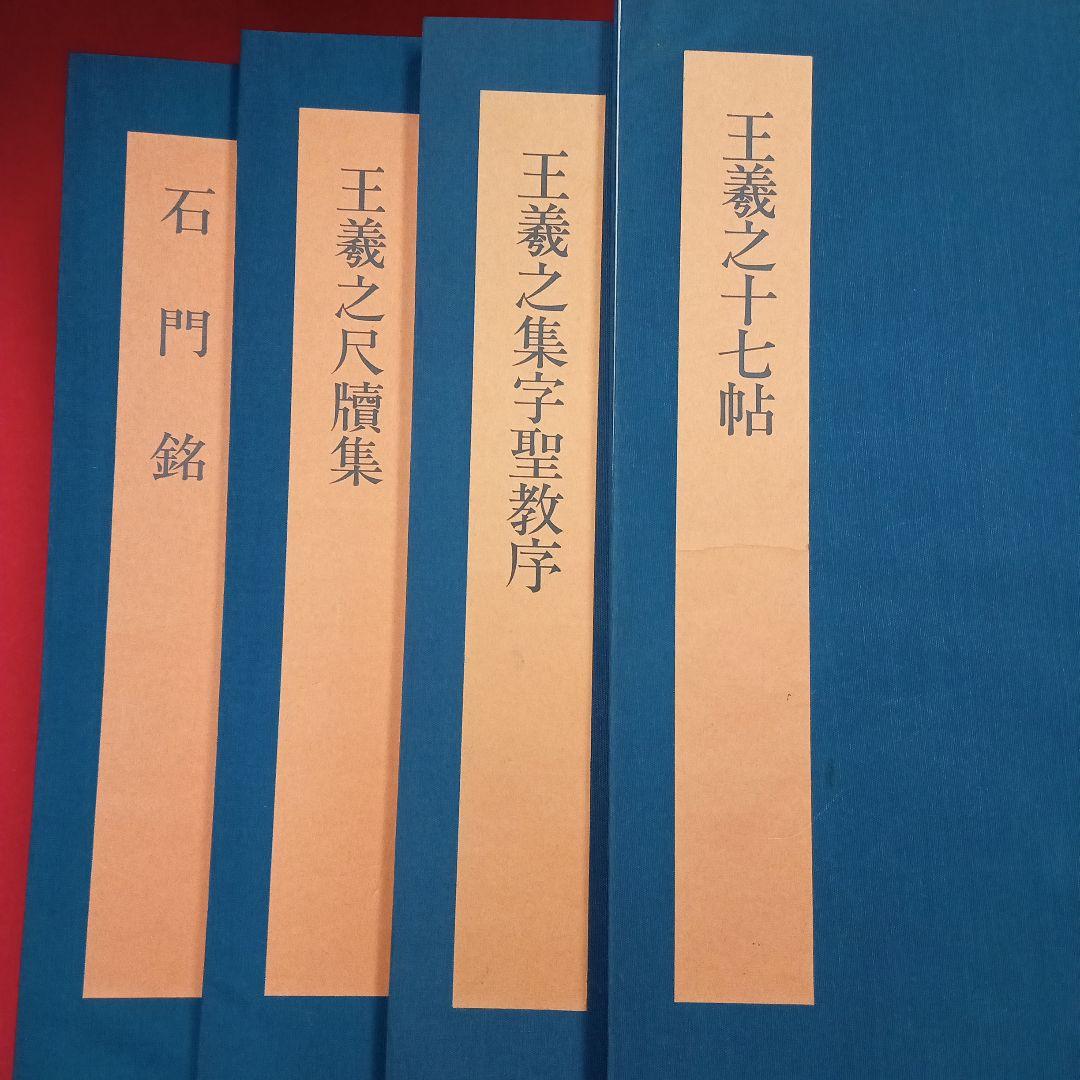 王羲之十七帖
王羲之集字聖教序
王羲之尺牘集
石門銘